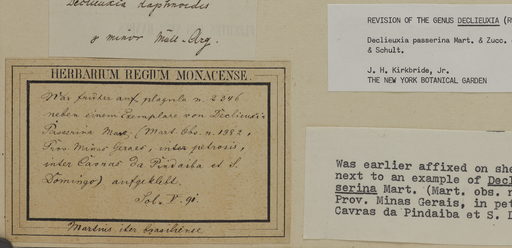 Declieuxia daphnoides
γ minor Müll-Arg.
HERBARIUM REGIUM MONACENSE.
War früher auf plagula n. 2346
neben einem Exemplare von Declieuxia
Passerina Mart. (Mart. Obs. n. 1982,
Prov. Minas Geraes, inter petrosis,
inter Cavras da Pindaiba et S.
Domingo) aufgeklebt.
Sol. V. 91.
Martius iter brasiliense
REVISION OF THE GENUS DECLIEUXIA (RU
Declieuxia passerina Mart. & Zucc.
& Schult.
J. H. Kirkbride, Jr.
THE NEW YORK BOTANICAL GARDEN
Was earlier affixed on she
next to an example of Decl
serina Mart. (Mart. obs. n
Prov. Minas Gerais, in pet
Cavras da Pindaiba et S. D